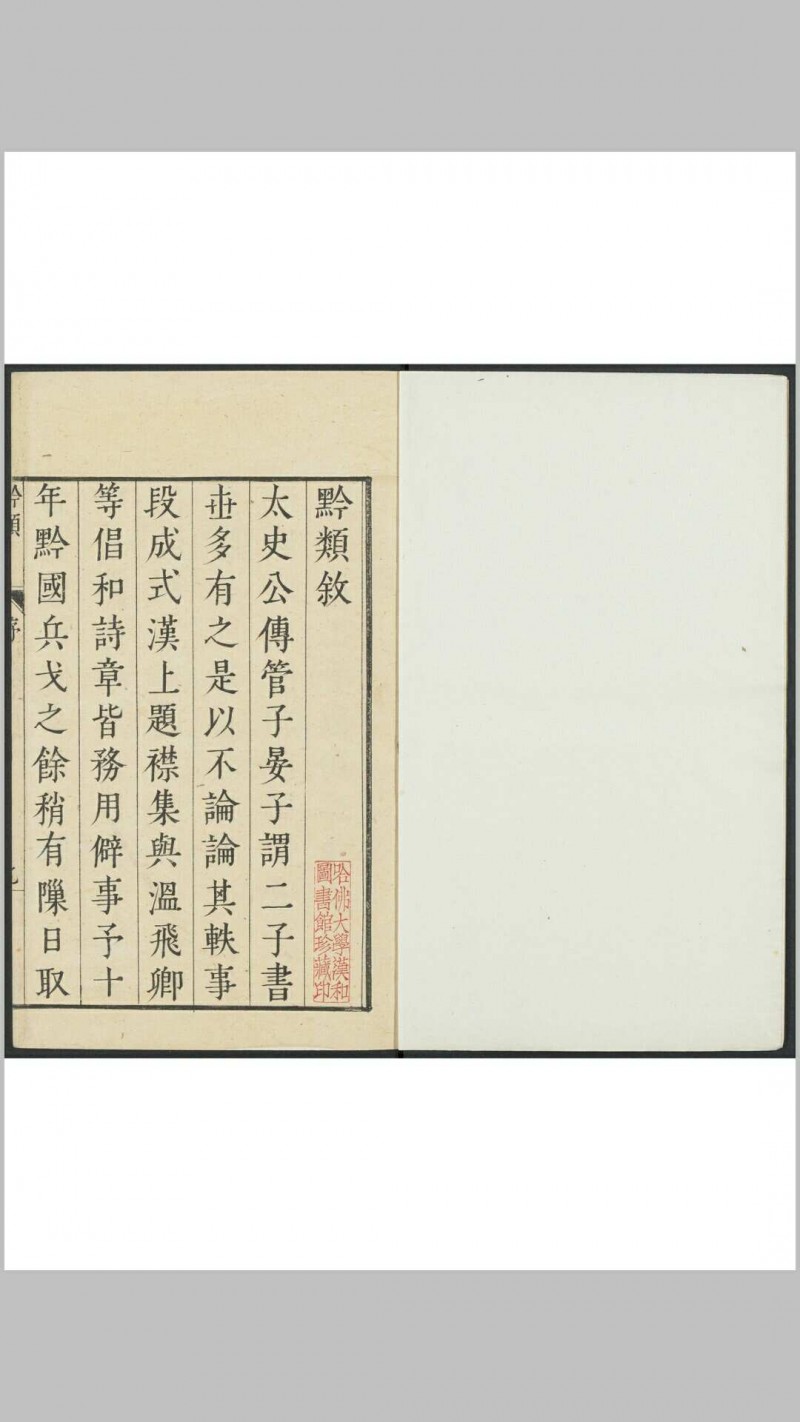 黔類敘
哈佛大學漢和
圖書館珍藏印
太史公傳管子晏子謂二子書
世多有之是以不論論其軼事
段成式漢上題襟集與溫飛卿
等倡和詩章皆務用僻事予十
年黔國兵戈之餘稍有隟日取
黔類
序